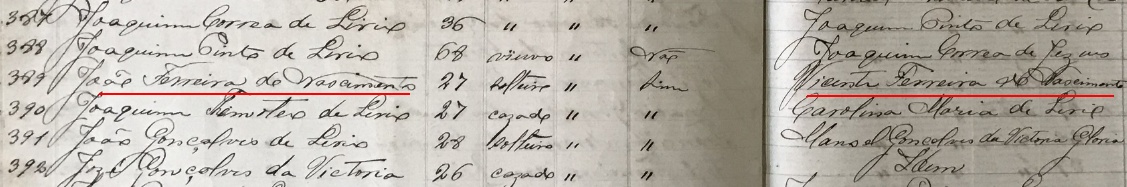 387 Joaquim Correa de Lirio 36 " " Joaquim Pinto de Lirio
388 Joaquim Pinto de Lirio 68 viuvo " Não Joaquim Correa de Jesus
389 João Ferreira do Nascimento 27 solteiro " Sim Vicente Ferreira do Nascimento
390 Joaquim de Lirio 27 cazado " " Carolina Maria de Lirio
391 João Gonçalves de Lirio 28 solteiro " " Manoel Gonçalves da Victoria Gloria
392 José Gonçalves da Victoria 26 cazado " " Idem